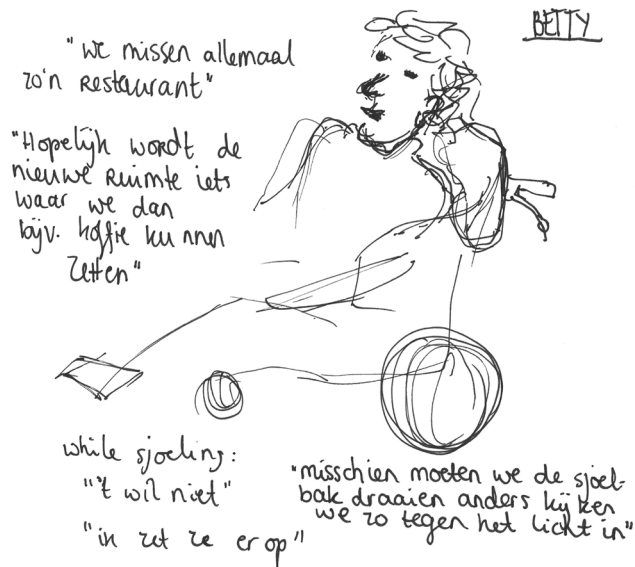 BETTY
"we missen allemaal
zo'n restaurant"
"Hopelijk wordt de
nieuwe ruimte iets
waar we dan
bijv. koffie kunnen
zetten"
while sjoeling:
"'t wil niet"
"ik zet ze er op"
"misschien moeten we de sjoel-
bak draaien anders kijken
we zo tegen het licht in"